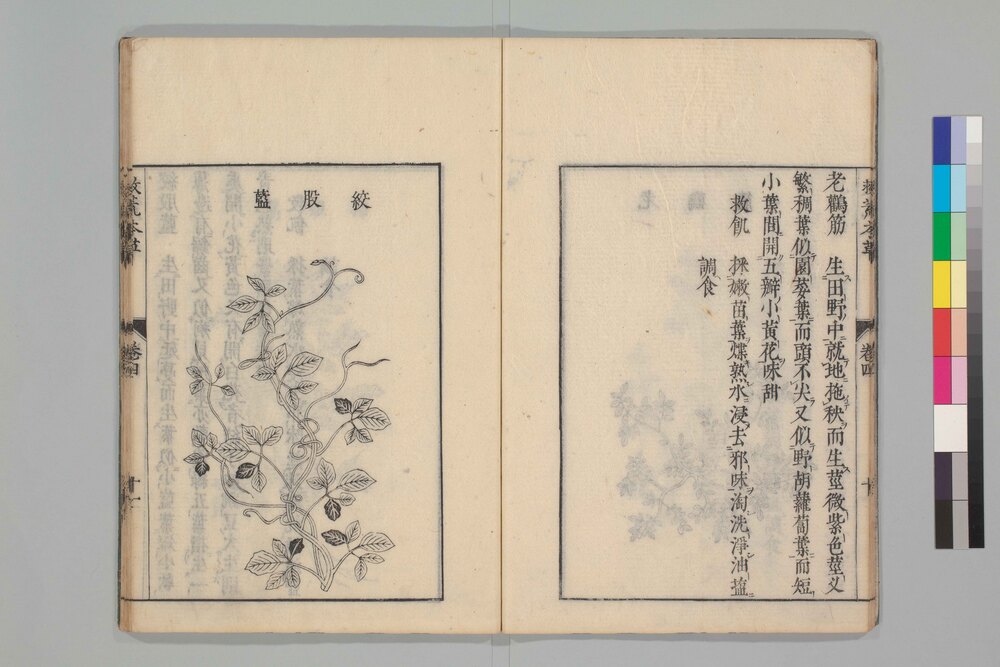 老鸛筋　生田野中就地拖秧而生莖微紫色莖叉
繁稠葉似園荽葉而頭不尖又似野胡蘿蔔葉而短
小葉間開五瓣小黃花味甜
救飢　採嫩苗葉煠熟水浸去邪味淘洗淨油鹽
調食
絞股藍
救荒本草
卷四
十一